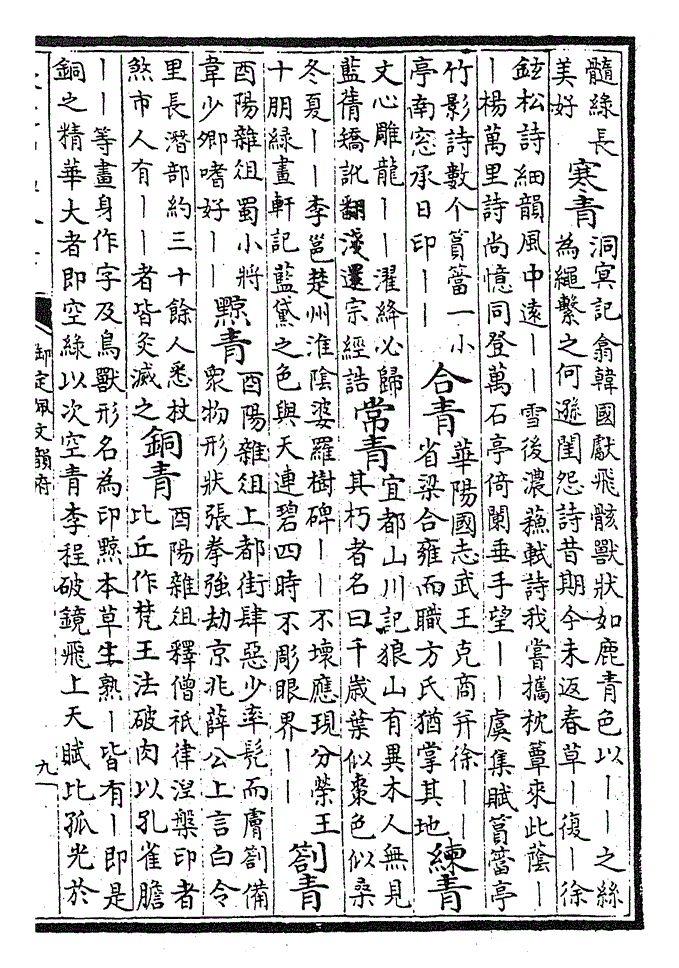 髓綠長
美好
寒青
洞冥記翕韓國獻飛骸獸狀如鹿青色以丨丨之絲
為繩繫之何遜閨怨詩昔期今未返春草丨復丨徐
鉉松詩細韻風中遠丨丨雪後濃蘇軾詩我嘗攜枕簟來此蔭丨
丨楊萬里詩尚憶同登萬石亭倚闌垂手望丨丨虞集賦篔簹亭
竹影詩數个篔簹一小
亭南窓承日印丨丨
合青
華陽國志武王克商并徐丨丨
省梁合雍而職方氏猶掌其地
練青
文心雕龍丨丨濯絳必歸
藍蒨矯訛翻淺還宗經誥
常青
宜都山川記狼山有異木人無見
其朽者名曰千歲葉似棗色似桑
冬夏丨丨李邕楚州淮陰婆羅樹碑丨丨不壞應現分榮王
十朋綠畫軒記藍黛之色與天連碧四時不彫眼界丨丨
劄青
酉陽雜俎蜀小將
韋少卿嗜好丨丨
黥青
酉陽雜俎上都街肆惡少率髡而膚劄備
衆物形狀張拳強劫京兆薛公上言白令
里長潛部約三十餘人悉杖
煞市人有丨丨者皆炙滅之
銅青
酉陽雜俎釋僧祇律涅槃印者
比丘作梵王法破肉以孔雀膽
丨丨等畫身作字及鳥獸形名為印黥本草生熟丨皆有丨即是
銅之精華大者即空綠以次空青李程破鏡飛上天賦比孤光於
御定佩文韻府
九